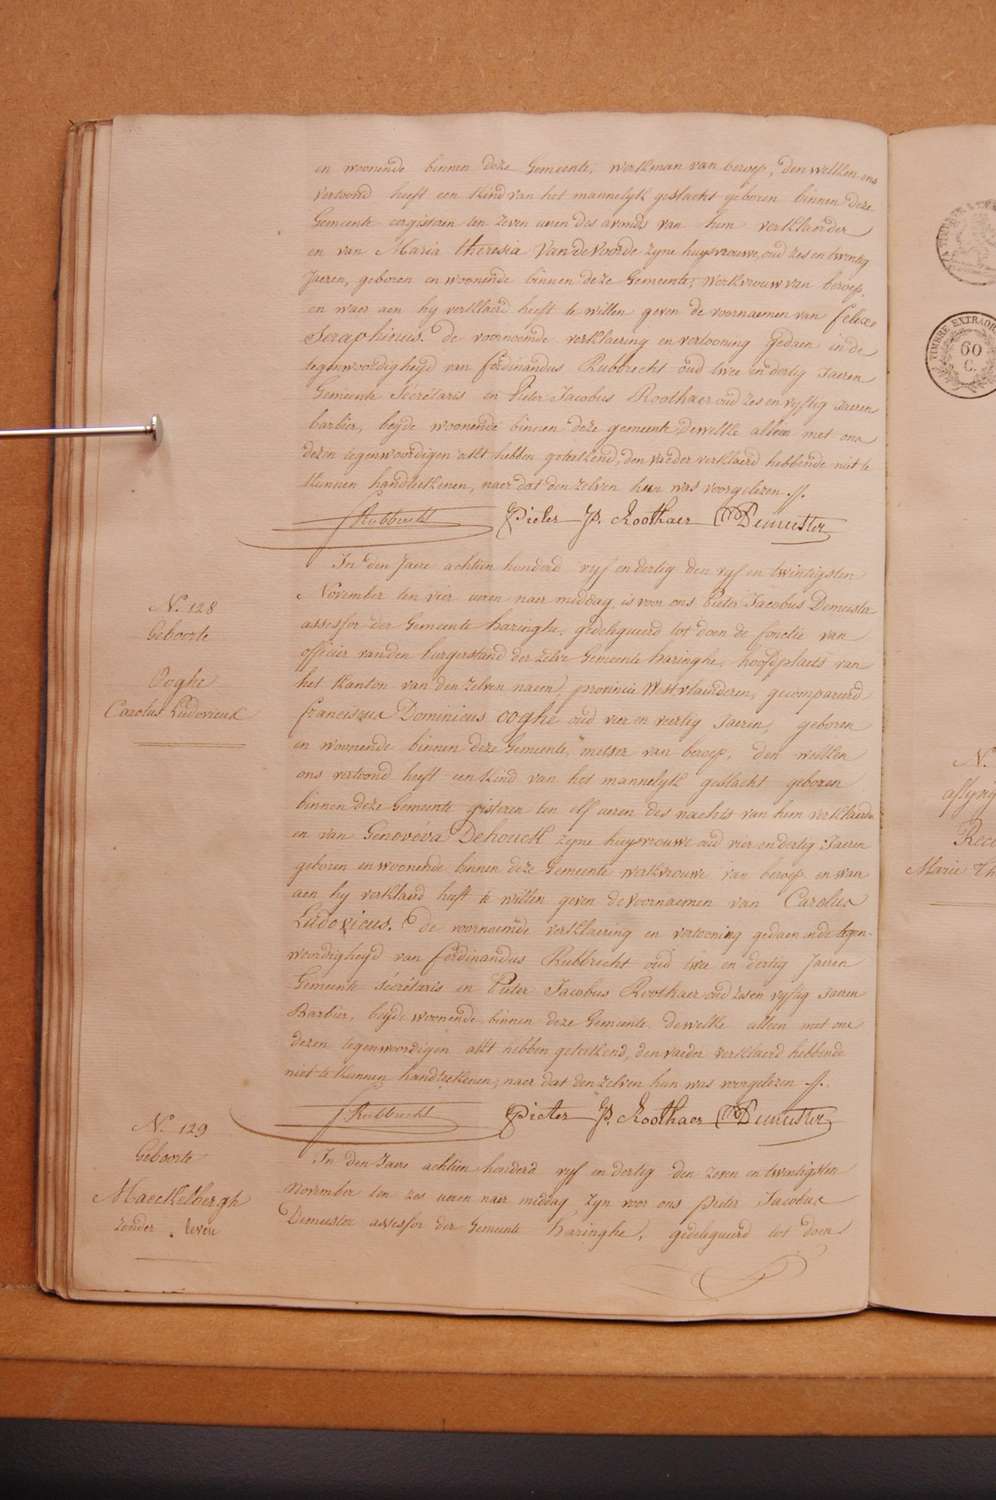 en woonende binnen deze Gemeente, werkman van beroep, den welken ons
vertoond heeft een kind van het mannelyk geslacht geboren binnen deze
Gemeente eergisteren ten zeven uren des avonds van hem verklaerder
en van Maria Theresia Van de Voorde zyne huysvrouwe, oud zes en twintig
Jaeren, geboren en woonende binnen deze Gemeente, werkvrouw van beroep,
en waer aen hy verklaerd heeft te willen geven de voornaemen van Felix
Seraphicus. de voornoemde verklaering en vertooning gedaen in de
tegenwoordigheyd van Ferdinandus Rubbrecht oud twee en dertig Jaeren
Gemeente Sécrétaris en Pieter Jacobus Roothaer oud zes en vyftig Jaeren
barbier, beyde woonende binnen deze gemeente dewelke alleen met ons
dezen tegenwoordigen akt hebben geteekend, den vaeder verklaerd hebbende niet te
kunnen handteekenen, naer dat den zelven hun was voorgelezen.
F Rubbrecht Pieter J. Roothaer PJ Demeester
In den Jaere achtien honderd vyf en dertig den vyf en twintigsten
November ten vier uren naer middag, is voor ons Pieter Jacobus Demeester
assessor der Gemeente haringhe, gedelegueerd tot doen de fonctie van
officier van den burgerstand der zelve Gemeente haringhe, hoofdplaets van
het kanton van den zelven naem, provincie Westvlaenderen, gecompareerd
Franciscus Dominicus Ooghe oud vier en veertig Jaeren, geboren
en woonende binnen deze Gemeente, metser van beroep, den welken
ons vertoond heeft een kind van het mannelyk geslacht geboren
binnen deze Gemeente gisteren ten elf uren des nachts van hem verklaerder
en van Genovéva Dehouck zyne huysvrouwe oud vier en dertig Jaeren
geboren en woonende binnen deze Gemeente werkvrouwe van beroep en waer
aen hy verklaerd heeft te willen geven de voornaemen van Carolus
Ludovicus. de voornoemde verklaering en vertooning gedaen in de tegen-
woordigheyd van Ferdinandus Rubbrecht oud twee en dertig Jaeren
Gemeente sécrétaris en Pieter Jacobus Roothaer oud zes en vyftig Jaeren
Barbier, beyde woonende binnen deze Gemeente dewelke alleen met ons
dezen tegenwoordigen akt hebben geteekend, den vaeder verklaerd hebbende
niet te kunnen handteekenen, naer dat den zelven hun was voorgelezen.
F Rubbrecht Pieter J. Roothaer PJ Demeester
In den Jaere achtien honderd vyf en dertig den zeven en twintigsten
November ten zes uren naer middag zyn voor ons Pieter Jacobus
Demeester assessor der Gemeente haringhe, gedelegueerd tot doen
N.° 128
Geboorte
Ooghe
Carolus Ludovicus
N.° 129
Geboorte
Maeckelbergh
zonder leven
TIMBRE EXTRAOR
60
C.
N.
Marie Th